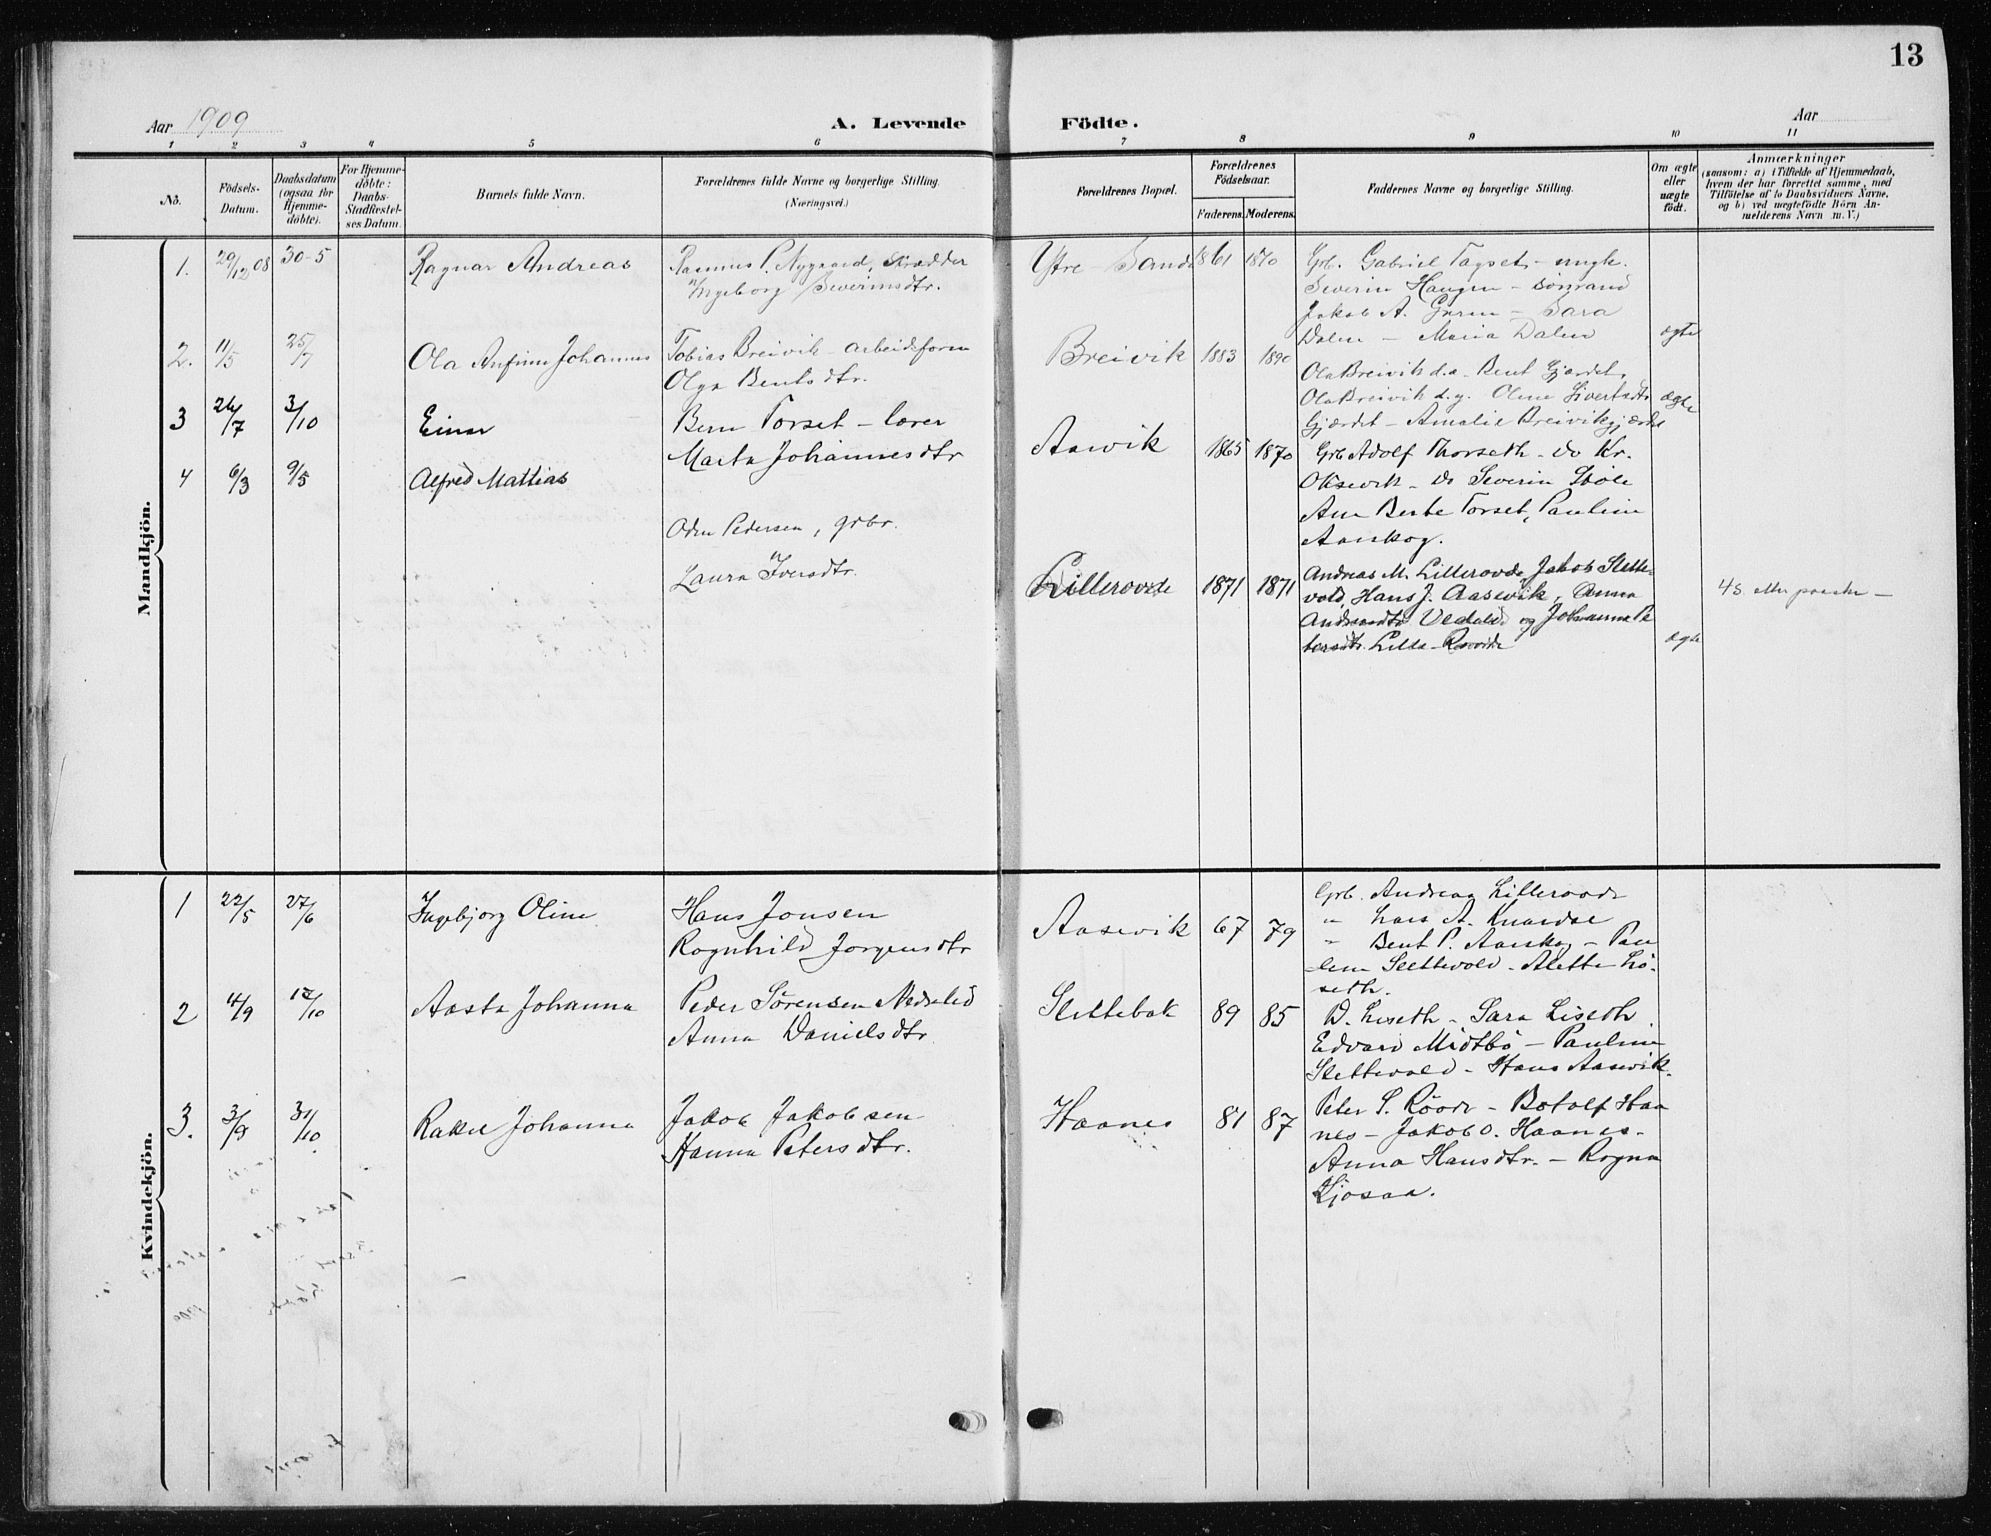 13
Aar 1909
A. Levende Födte.
Aar
1 2 3 4 5 6 7 8 9 10 11
No.
Födsels-Datum.
Daabsdatum (ogsaa for Hjemme-döbte).
For Hjemme-döbte: Daabs-Stadfæstel-ses Datum.
Barnets fulde Navn.
Forældrenes fulde Navne og borgerlige Stilling. (Næringsvei.)
Forældrenes Bopæl.
Forældrenes Födselsaar.
Faderens. Moderens.
Faddernes Navne og borgerlige Stilling.
Om ægte eller uægte födt.
Anmærkninger
(saasom: a) i Tilfælde af Hjemmedaab,
hvem der har forrettet samme, med
Tilföielse af to Daabsvidners Navne,
og b) ved uægtefödte Börn An-
melderens Navn m. V.)
Mandkjön.
1. 29/12 08 30-5 Ragnar Andreas
Rasmus P. Nygaard, skrædder
Ingeborg Severinsdtr.
Ytre Sand 1861 1870
Grb. Gabriel - ungk.
Severin Haugen -
Jakob A. - Sara
Dalen - Maria Dalen
ægte
2. 11/5 25/7 Ola Anfinn Johannes
Tobias Breivik - arbeidsform
Olga Bentsdtr.
Breivik 1883 1890
Ola Breivik d.æ. Bent Gjærdet,
Ola Breivik d.y. Oline Sivertsdtr
Gjærdet - Amalie Breivikgjærdet
ægte
3 26/7 3/10 Einar
Bern Torset - lærer
Marta Johannesdtr
Aasvik 1865 1870
Grb Adolf Thorseth - do Kr.
Oksevik - do Severin Støle
Ane Berte Torset, Pauline
Aarskog.
4 6/3 9/5 Alfred Mattias
Odin Pedersen, grbr.
Laura Iversdtr.
Lillerovde 1871 1871
Andreas M. Lillerovde, Jakob Slette-
vold, Hans J. Aasevik, Anna
Andreasdtr og Johanna Pe
tersdtr. Lille-Rovde
ægte
48 efter paaske -
Kvindekjön.
1 22/5 27/6 Ingebjorg Oline
Hans Jonsen
Rognhild Jorgensdtr
Aasevik 67 79
Grb. Andreas Lillerovde
" Lars A. Knardal
" Bent P. Aarskog - Pau
line Slettevold - Alette Lö-
seth.
2 4/9 17/10 Aasta Johanna
Peder Sörensen Nedrelid
Anna Danielsdtr.
Slettebak 89 85
D. Liseth - Sara Liseth.
Edvard Midtbö - Pauline
Slettevold - Hans Aasevik.
3. 3/9 31/10 Rakel Johanna
Jakob Jakobsen
Hanna Petersdtr.
Haanes 81 87
Peter S. Rövde - Botolf Haa
nes - Jakob O. Haanes.
Anna Hansdtr. - Rogna
Kjosaa.